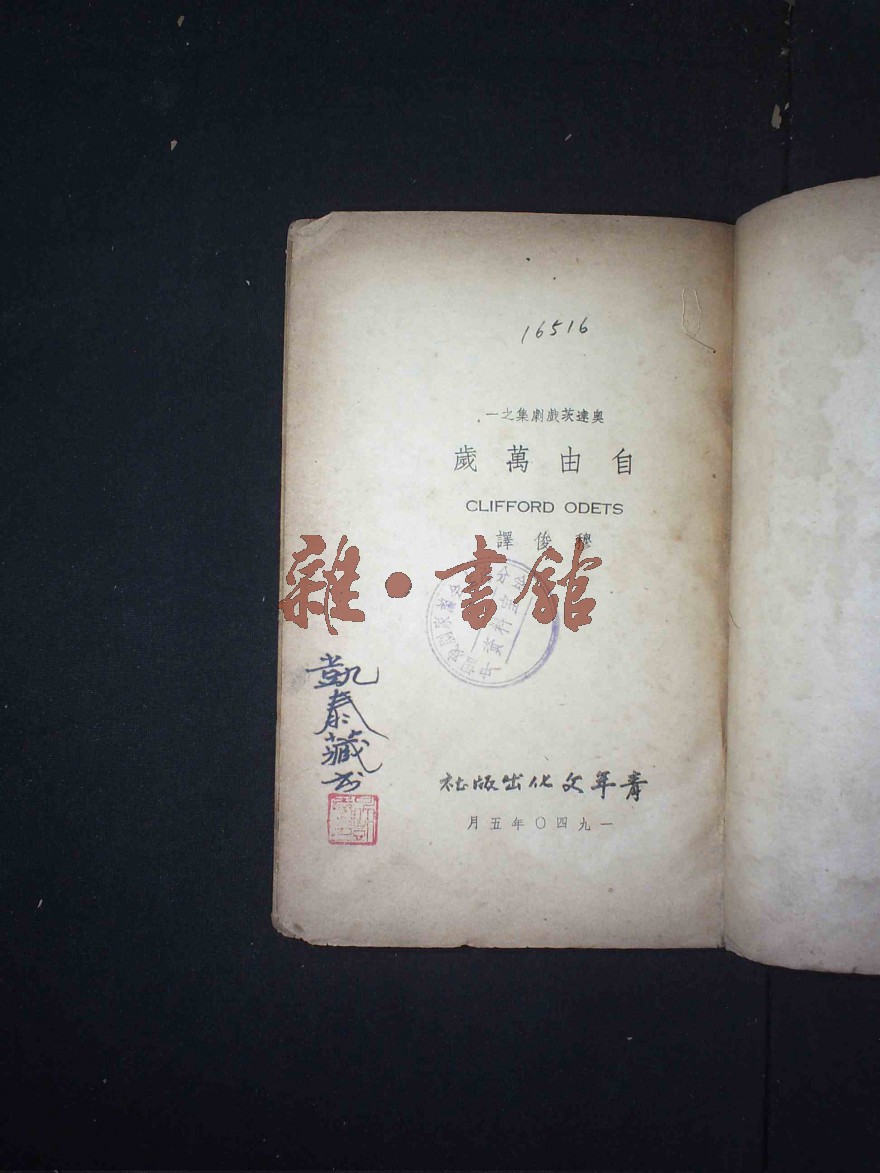 16516
奥達茨戲劇集之一
自由萬歲
CLIFFORD ODETS
穆俊譯
雜·書館
資料室
凱泰藏書
青年文化出版社
一九四〇年五月